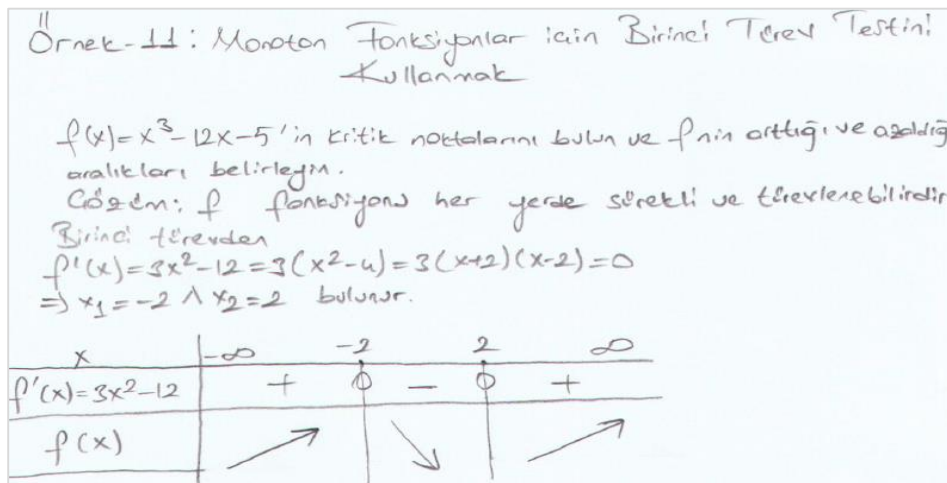 Örnek-11: Monoton Fonksiyonlar için Birinci Türev Testini
Kullanmak
f(x)=x³-12x-5'in kritik noktalarını bulun ve f nin arttığı ve azaldığı
aralıkları belirleyin.
Çözüm: f fonksiyonu her yerde sürekli ve türevlenebilirdir
Birinci türevden
f'(x)=3x²-12=3(x²-4)=3(x+2)(x-2)=0
⇒ x₁=-2 ∧ x₂=2 bulunur.
x -∞ -2 2 ∞
f'(x)=3x²-12 + 0 - 0 +
f(x)